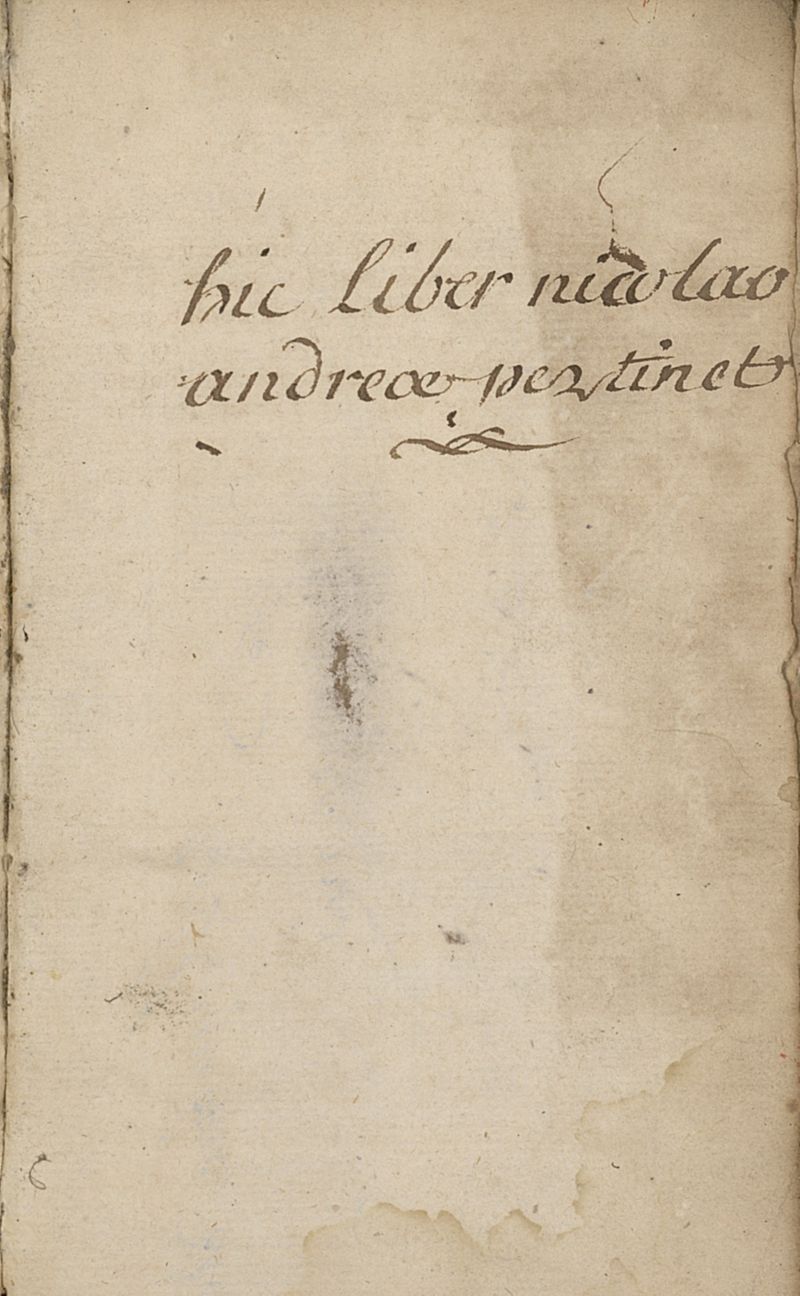 hic liber nicolao
andreæ pertinet